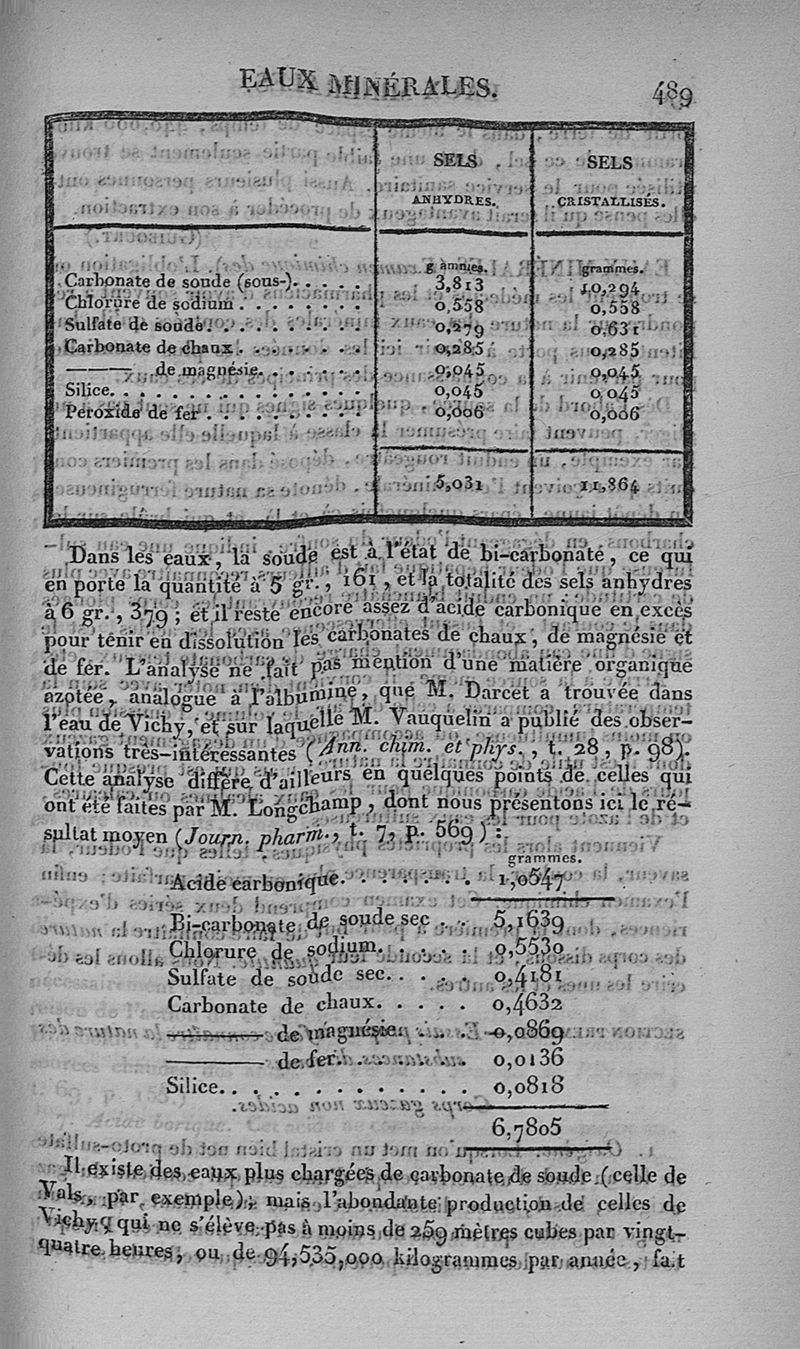 EAUX MINÉRALES. 489
SELS ANHYDRES. SELS CRISTALLISÉS.
grammes. grammes.
Carbonate de soude (sous-). . . . . 3,813 10,294
Chlorure de sodium . . . . . . . . 0,558 0,558
Sulfate de soude . . . . . . . . . 0,279 0,631
Carbonate de chaux . . . . . . . . 0,285 0,285
——— de magnésie. . . . . . . 0,045 0,045
Silice. . . . . . . . . . . . . . 0,045 0,045
Peroxide de fer . . . . . . . . . . 0,006 0,006
5,031 11,864
Dans les eaux, la soude est à l'état de bi-carbonate, ce qui
en porte la quantité à 5 gr., 161, et la totalité des sels anhydres
à 6 gr., 379 ; et il reste encore assez d'acide carbonique en excès
pour tenir en dissolution les carbonates de chaux, de magnésie et
de fer. L'analyse ne fait pas mention d'une matière organique
azotée, analogue à l'albumine, que M. Darcet a trouvée dans
l'eau de Vichy, et sur laquelle M. Vauquelin a publié des obser-
vations très-intéressantes (Ann. chim. et phys., t. 28, p. 98).
Cette analyse diffère d'ailleurs en quelques points de celles qui
ont été faites par M. Longchamp, dont nous présentons ici le ré-
sultat moyen (Journ. pharm., t. 7, p. 569) :
grammes.
Acide carbonique. . . . . . . . 1,0547
Bi-carbonate de soude sec . . 5,1639
Chlorure de sodium. . . . . . 0,5530
Sulfate de soude sec. . . . . 0,4181
Carbonate de chaux. . . . . 0,4632
——— de magnésie. . . . 0,0869
——— de fer. . . . . . . . 0,0136
Silice. . . . . . . . . . . . . . 0,0818
6,7805
Il existe des eaux plus chargées de carbonate de soude (celle de
Vals, par exemple) ; mais l'abondante production de celles de
Vichy, qui ne s'élève pas à moins de 259 mètres cubes par vingt-
quatre heures, ou de 94,535,000 kilogrammes par année, fait